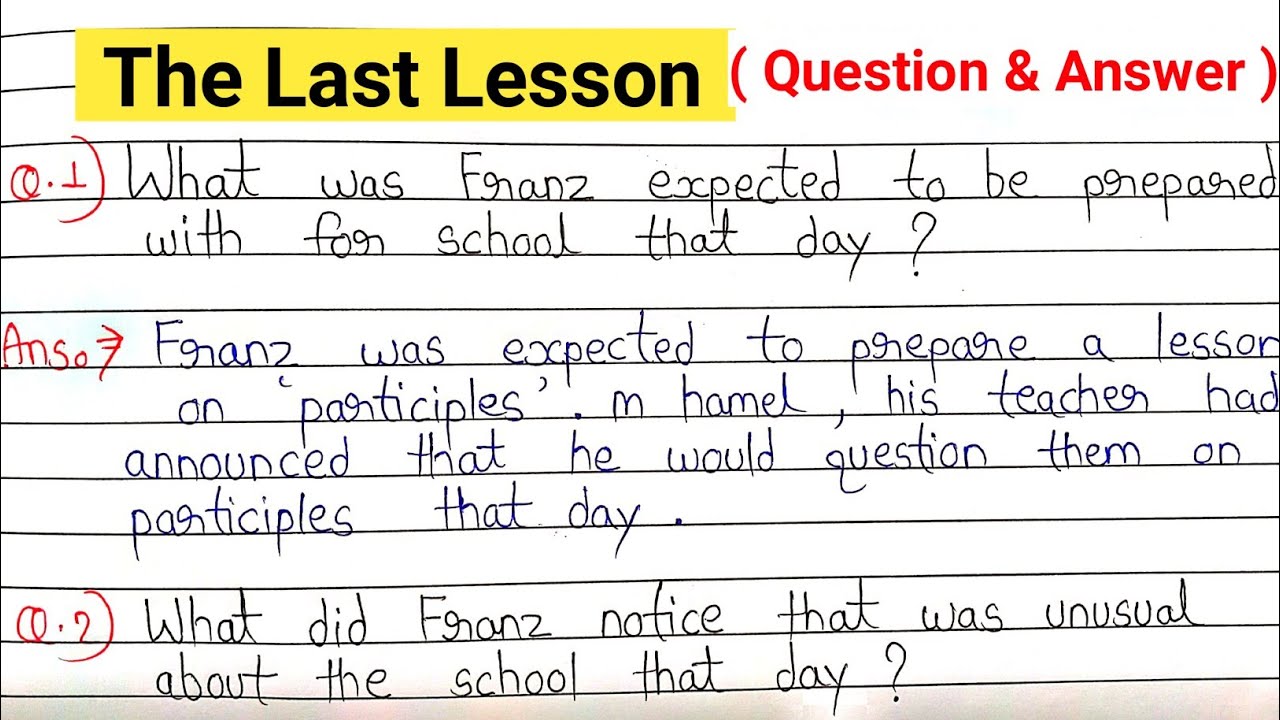 The Last Lesson ( Question & Answer )
Q.1) What was Franz expected to be prepared
with for school that day ?
Ans.⇒ Franz was expected to prepare a lesson
on 'participles'. m hamel, his teacher had
announced that he would question them on
participles that day.
Q.2) What did Franz notice that was unusual
about the school that day ?